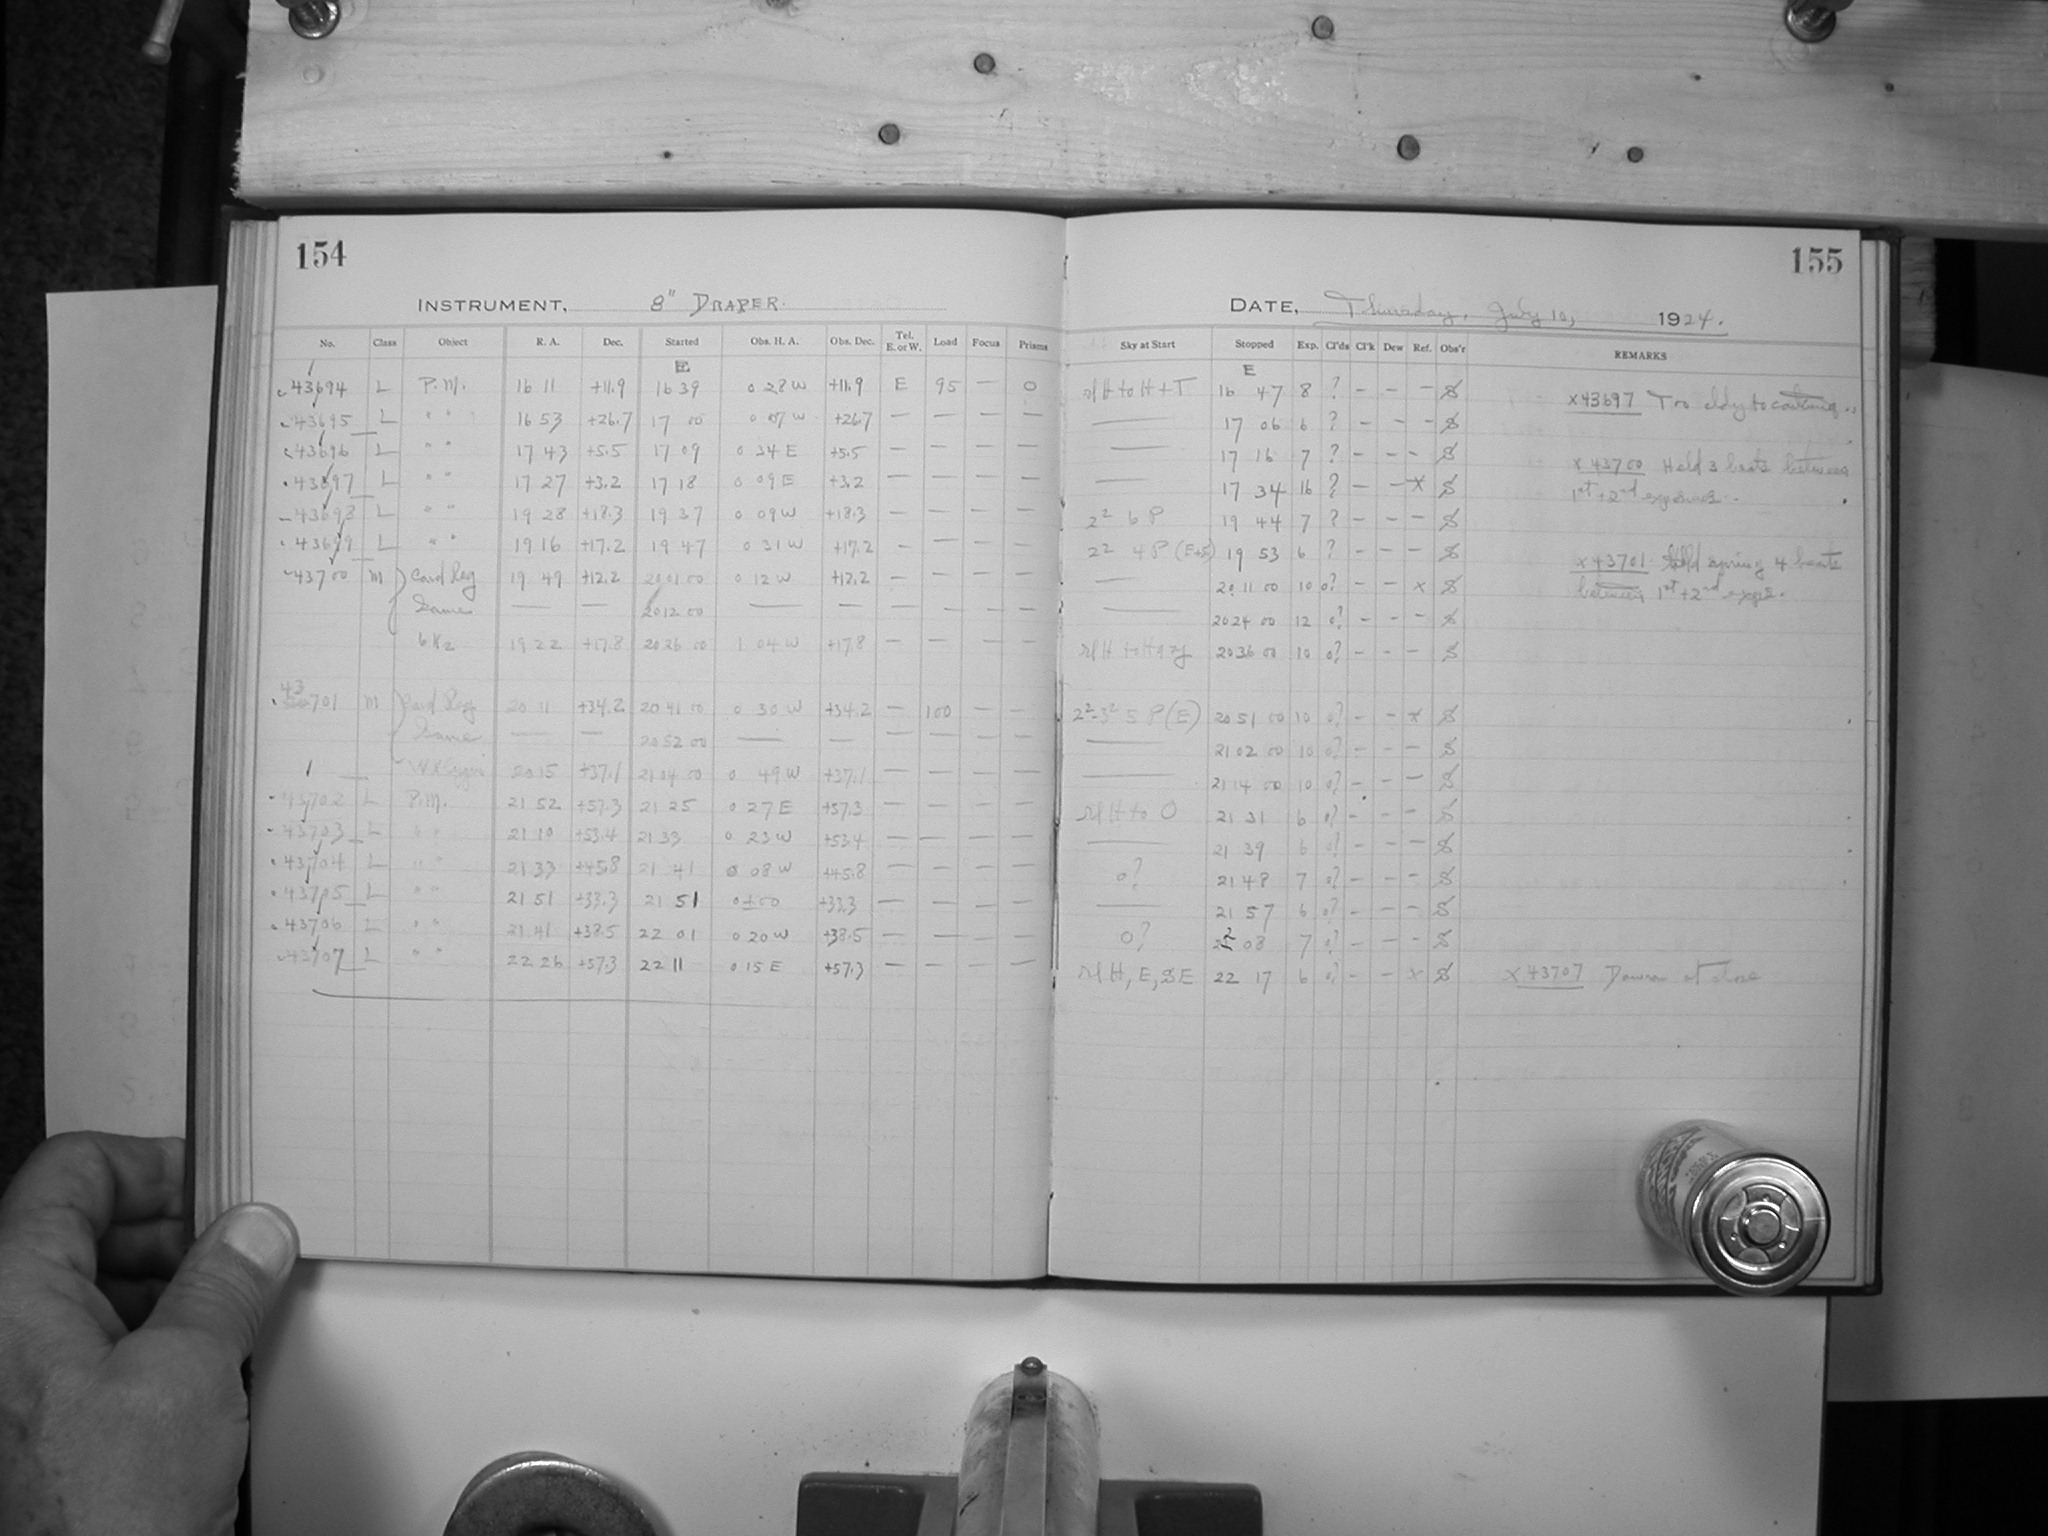 154
INSTRUMENT, 8" DRAPER.
No. Class Object R. A. Dec. Started Obs. H. A. Obs. Dec. Tel. E. or W. Load Focus Prisms
E
43694 L P.M. 16 11 +11.9 16 39 0 28 W +11.9 E 95 — 0
43695 L " " 16 53 +26.7 17 00 0 07 W +26.7 — — — —
43696 L " " 17 43 +5.5 17 09 0 34 E +5.5 — — — —
43697 L " " 17 27 +3.2 17 18 0 09 E +3.2 — — — —
43698 L " " 19 28 +18.3 19 37 0 09 W +18.3 — — — —
43699 L " " 19 16 +17.2 19 47 0 31 W +17.2 — — — —
43700 M Cand Reg 19 49 +12.2 20 01 00 0 12 W +12.2 — — — —
Same — — 20 12 00 — — — — — —
19 22 +17.8 20 26 00 1 04 W +17.8 — — — —
43701 M Cand Reg 20 11 +34.2 20 41 00 0 30 W +34.2 — 100 — —
Same — — 20 52 00 — — — — — —
20 15 +37.1 21 04 00 0 49 W +37.1 — — — —
43702 L P.M. 21 52 +57.3 21 25 0 27 E +57.3 — — — —
43703 L " " 21 10 +53.4 21 33 0 23 W +53.4 — — — —
43704 L " " 21 33 +45.8 21 41 0 08 W +45.8 — — — —
43705 L " " 21 51 +33.3 21 51 0 ± 00 +33.3 — — — —
43706 L " " 21 41 +38.5 22 01 0 20 W +38.5 — — — —
43707 L " " 22 26 +57.3 22 11 0 15 E +57.3 — — — —
155
DATE, Thursday, July 10, 1924.
Sky at Start Stopped Exp. Cl'ds Cl'k Dew Ref. Obs'r REMARKS
E
H to H + T 16 47 8 ? — — — S
— 17 06 6 ? — — — S
— 17 16 7 ? — — — S
— 17 34 16 ? — — x S
2² 6 P 19 44 7 ? — — — S
2² 4 P 19 53 6 ? — — — S
— 20 11 00 10 0? — — x S
— 20 24 00 12 0? — — — S
H to Hazy 20 36 00 10 0? — — — S
2²-3² 5 P (E) 20 51 00 10 0? — — x S
— 21 02 00 10 0? — — — S
— 21 14 00 10 0? — — — S
H to 0 21 31 6 0? — — — S
— 21 39 6 0? — — — S
0? 21 48 7 0? — — — S
— 21 57 6 0? — — — S
0? 22 08 7 0? — — — S
H, E, SE 22 17 6 0? — — x S
x 43697 Too cldy to continue
x 43700 Held 3 beats between
1st + 2nd exposures.
x 43701 Held spring 4 beats
between 1st + 2nd exps.
x 43707 Dawn at close